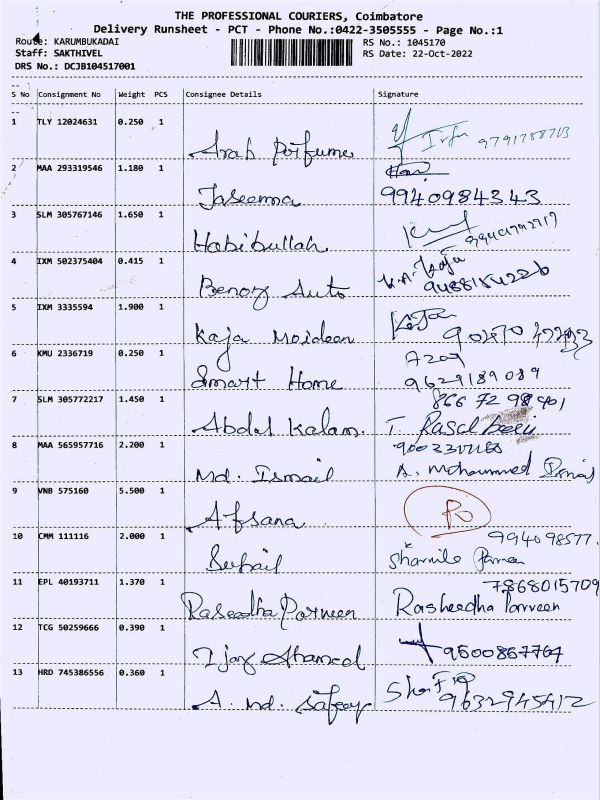 THE PROFESSIONAL COURIERS, Coimbatore
Delivery Runsheet - PCT - Phone No.:0422-3505555 - Page No.:1
Route: KARUMBUKADAI RS No.: 1045170
Staff: SAKTHIVEL RS Date: 22-Oct-2022
DRS No.: DCJB104517001
S No Consignment No Weight PCS Consignee Details Signature
1 TLY 12024631 0.250 1 Arab Perfume Irfan 9791788713
2 MAA 293319546 1.180 1 Jaseema 9940984343
3 SLM 305767146 1.650 1 Habibullah
4 IXM 502375404 0.415 1 Benoz Auto K.A. Koja
5 IXM 3335594 1.900 1 Kaja Moideen
6 KMU 2336719 0.250 1 Smart Home 9629189089
7 SLM 305772217 1.450 1 Abdul Kalam 866 72 98 401
8 MAA 565957716 2.200 1 Md. Ismail A. Mohammed
9 VNB 575160 5.500 1 Afsana
10 CMM 111116 2.000 1 Suhail 994098577
11 EPL 40193711 1.370 1 Raseedha Parveen 7868015709 Rasheedha Parveen
12 TCG 50259666 0.390 1 Ijaz Ahamed 9500867764
13 HRD 745386556 0.360 1 A. Md. 9632945412